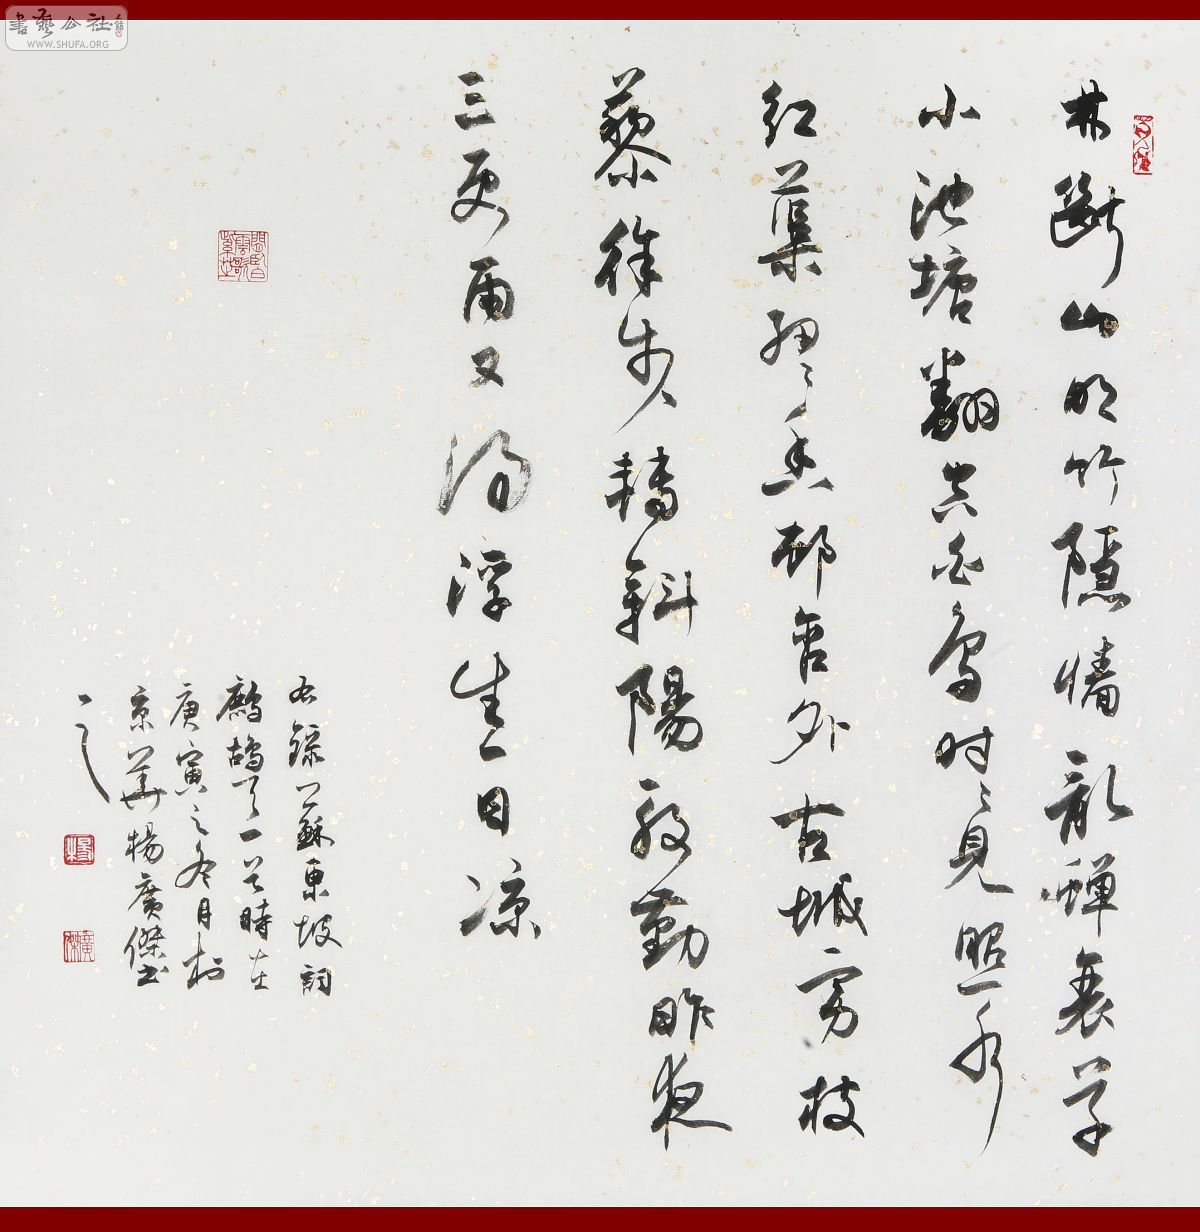 林斷山明竹隱墻亂蟬衰草
小池塘翻空白鳥時時見照水
紅蕖細細香邨舍外古城旁杖
藜徐步轉斜陽殷勤昨夜
三更雨又得浮生一日涼
右錄蘇東坡詞
鷓鴣天一首時在
庚寅之冬月於
京華楊廣傑書
之
書藝公社
WWW.SHUFA.ORG